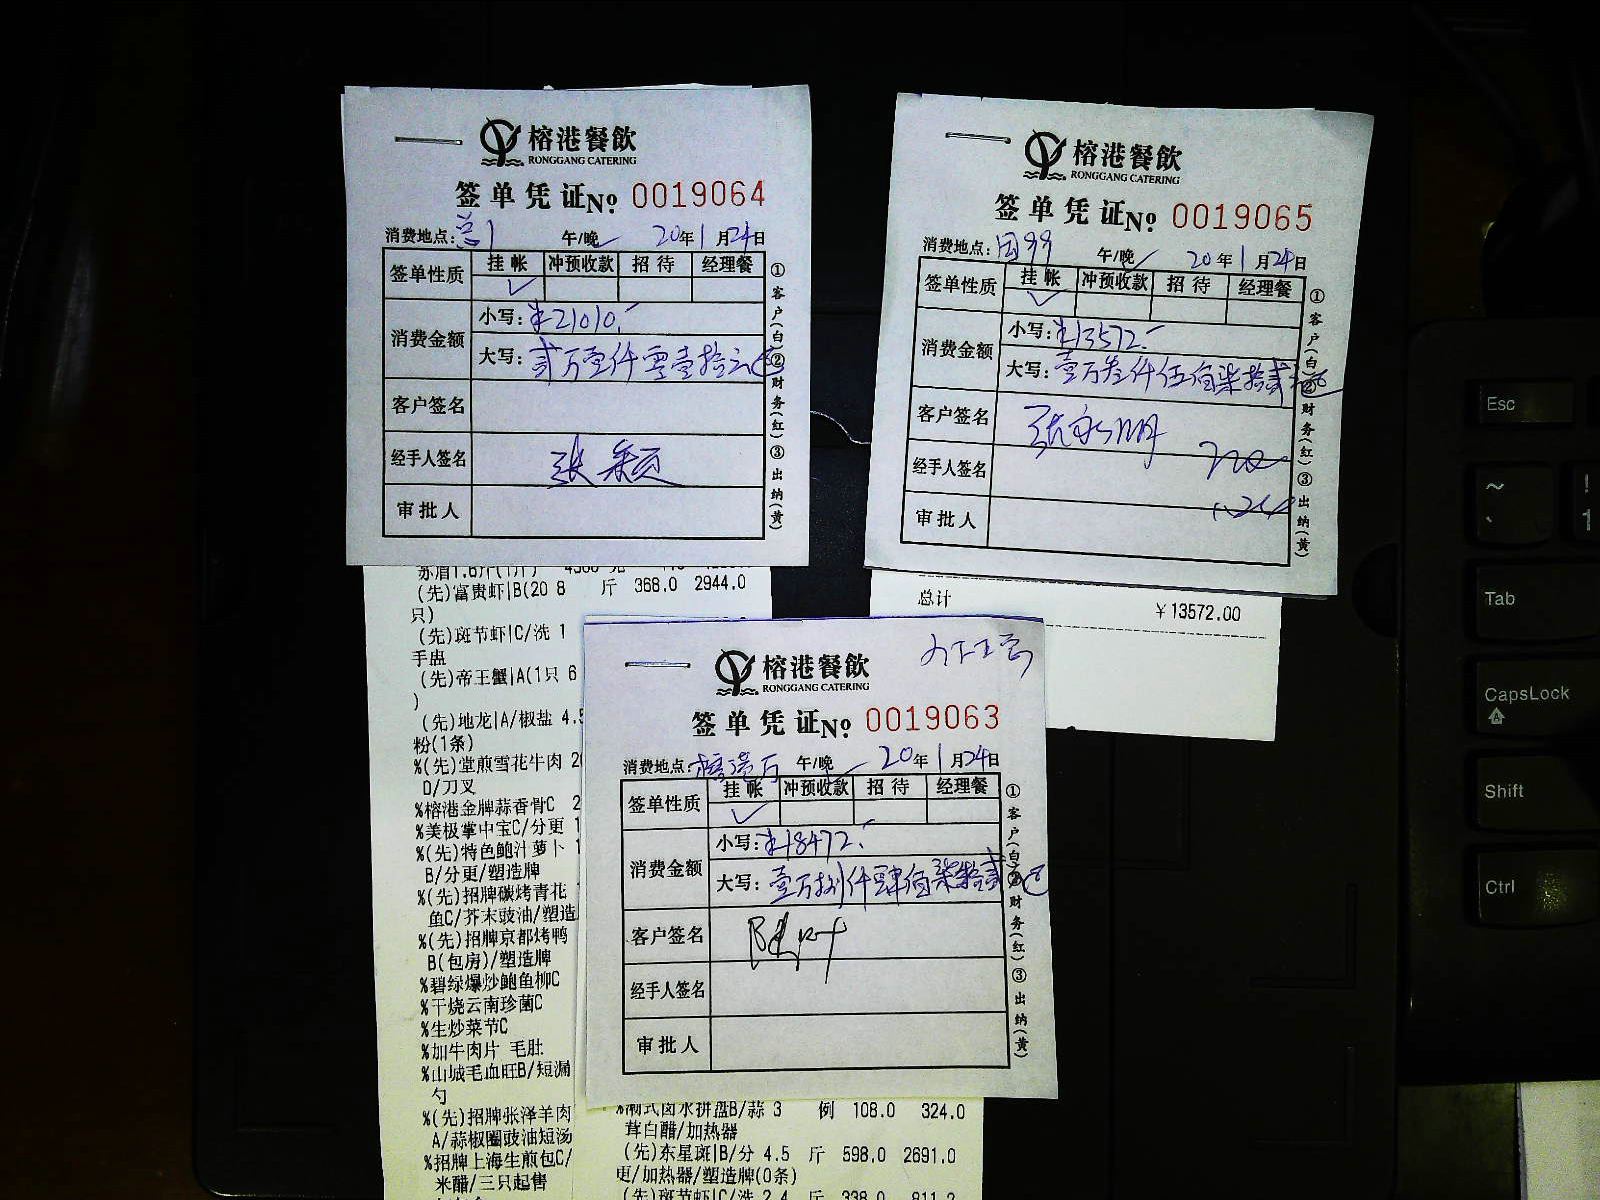 榕港餐飲
RONGGANG CATERING
签单凭证№ 0019064
消费地点: 总1 午/晚 20年1月24日
签单性质 挂帐 冲预收款 招待 经理餐
✓
消费金额
小写: ¥21010.-
大写: 贰万壹仟零壹拾元
客户签名
经手人签名 张颖
审批人
①客户(白)②财务(红)③出纳(黄)
榕港餐飲
RONGGANG CATERING
签单凭证№ 0019065
消费地点: 午/晚 20年1月24日
签单性质 挂帐 冲预收款 招待 经理餐
✓
消费金额
小写: ¥13572.-
大写: 壹万叁仟伍佰柒拾贰
客户签名
经手人签名
审批人
①客户(白)②财务(红)③出纳(黄)
(先)富贵虾|B(20 8 斤 368.0 2944.0
只)
(先)斑节虾|C/洗 1
手盅
(先)帝王蟹|A(1只 6
)
(先)地龙|A/椒盐 4.5
粉(1条)
%(先)堂煎雪花牛肉 20
D/刀叉
%榕港金牌蒜香骨C 2
%美极掌中宝C/分更 1
%(先)特色鲍汁萝卜 1
B/分更/塑造牌
%(先)招牌碳烤青花 1
鱼C/芥末豉油/塑造
%(先)招牌京都烤鸭
B(包房)/塑造牌
%碧绿爆炒鲍鱼柳C
%干烧云南珍菌C
%生炒菜节C
%加牛肉片 毛肚
%山城毛血旺B/短漏
勺
%(先)招牌张泽羊肉
A/蒜椒圈豉油短汤
%招牌上海生煎包C/
米醋/三只起售
总计 ￥13572.00
榕港餐飲
RONGGANG CATERING
签单凭证№ 0019063
消费地点: 榕港厅 午/晚 20年1月24日
签单性质 挂帐 冲预收款 招待 经理餐
✓
消费金额
小写: ¥18472.-
大写: 壹万捌仟肆佰柒拾贰
客户签名
经手人签名
审批人
①客户(白)②财务(红)③出纳(黄)
%潮式卤水拼盘B/蒜 3 例 108.0 324.0
茸白醋/加热器
(先)东星斑|B/分 4.5 斤 598.0 2691.0
更/加热器/塑造牌(0条)
(先)斑节虾|C/洗 2.4 斤 338.0 811.2
Esc
~
`
!
1
Tab
CapsLock
Shift
Ctrl